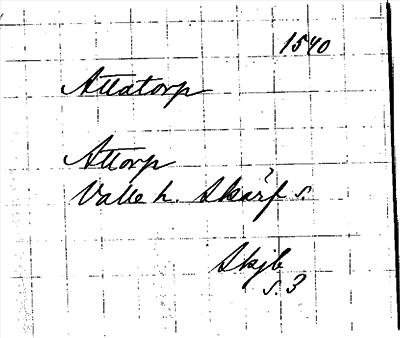 1540
Attatorp
Attorp
Valle h. Skärf s.
Skjb
s. 3